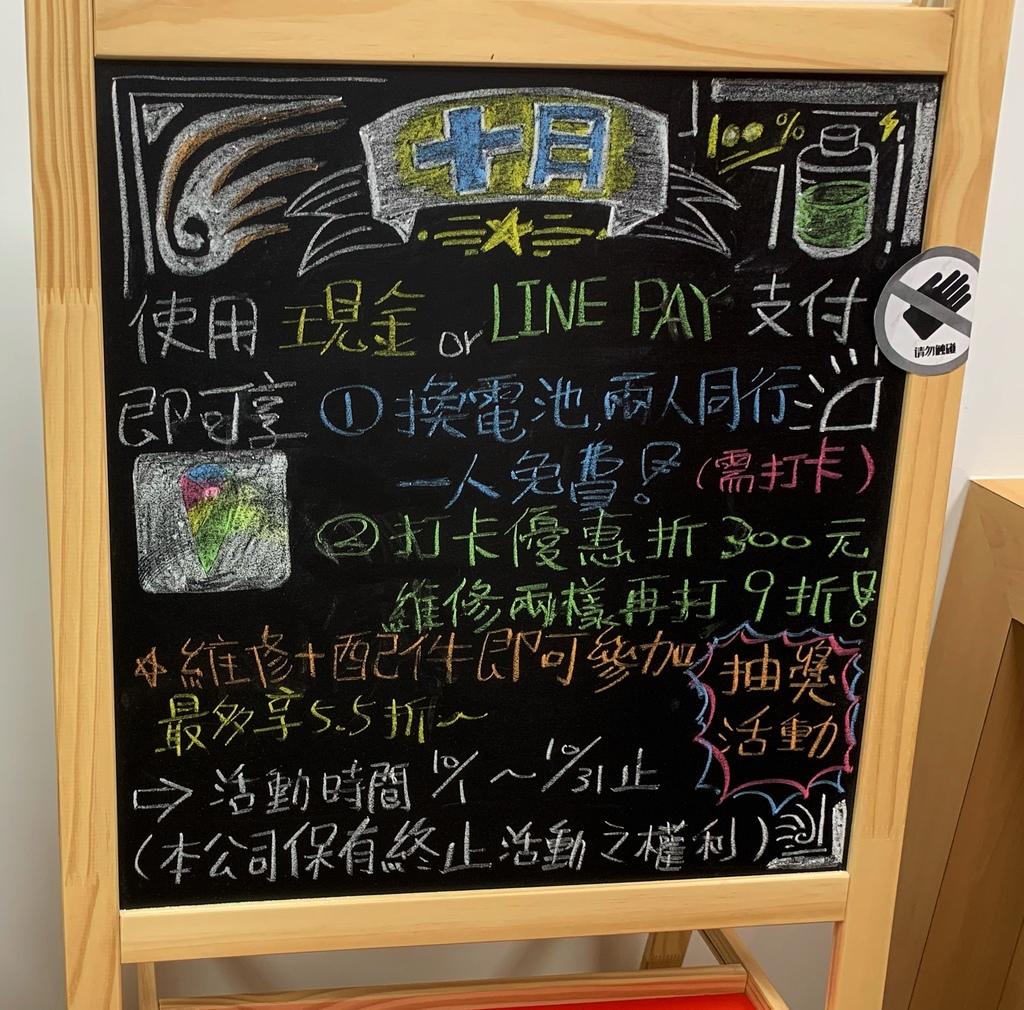 十月
100%
使用現金 or LINE PAY 支付
请勿触碰
即可享 ①換電池,兩人同行
一人免費! (需打卡)
②打卡優惠折300元
維修兩樣再打9折!
☆維修+配件即可參加
抽獎
活動
最多享5.5折~
⇨ 活動時間 10/1 ~ 10/31止
(本公司保有終止活動之權利)